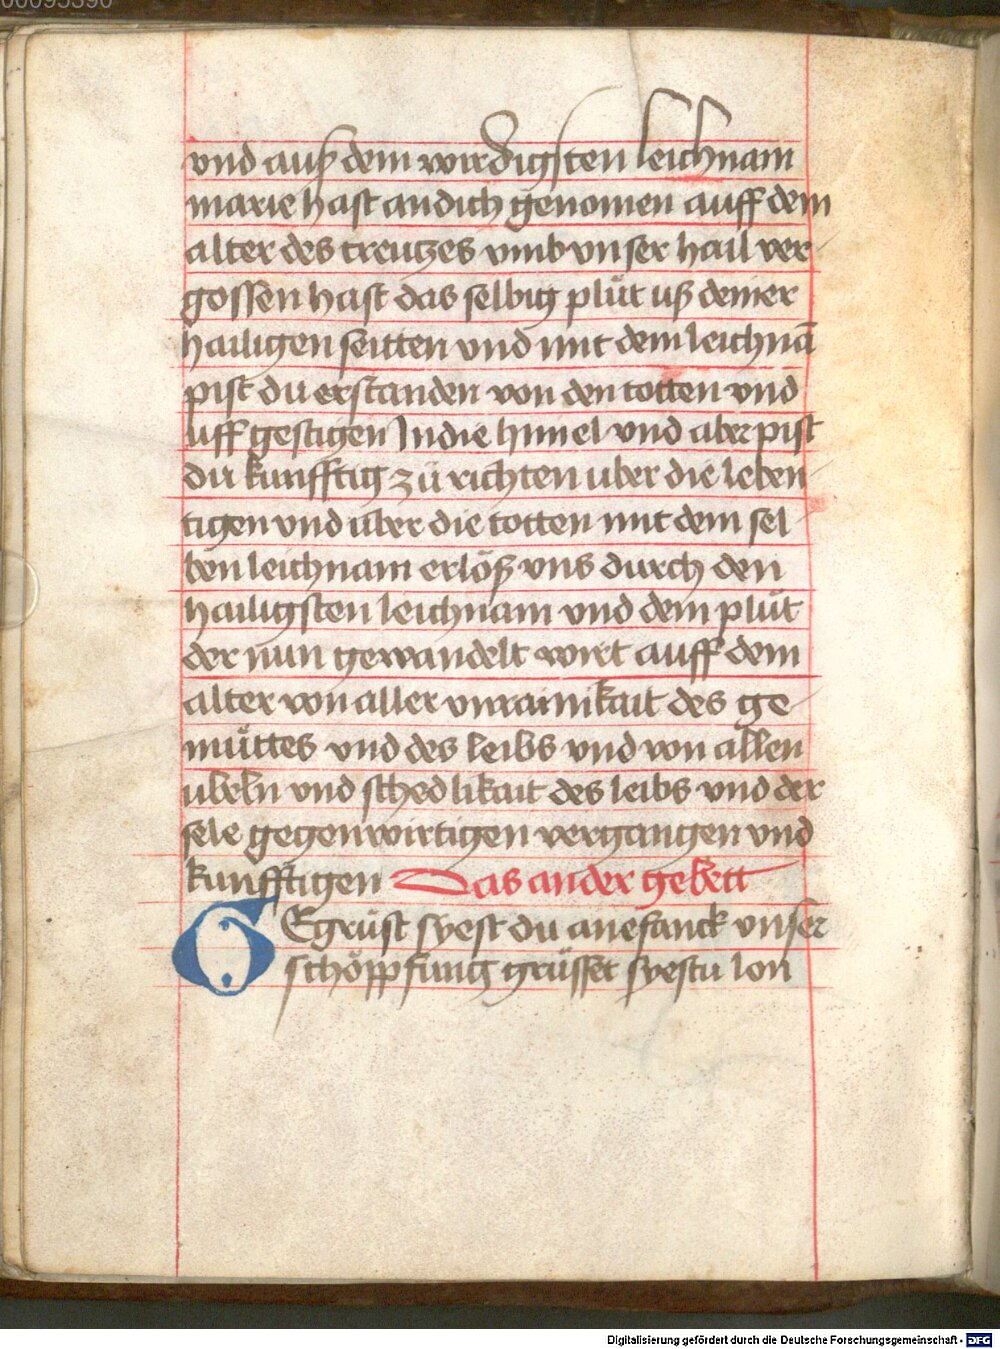 00095390
vnd auß dem wirdigsten leichnam
marie hast an dich genomen auff dem
alter des creutzes vmb vnser hail ver-
gossen hast das selbig plůt uß deiner
hailigen seitten vnd mit dem leichnā
pist du erstanden von den totten vnd
uff gestigen In die himel vnd aber pist
du kunfftig zů richten uber die leben-
tigen vnd uber die totten mit dem sel-
ben leichnam erlöß vns durch den
hailigsten leichnam vnd dem plůt
der nun gewandelt wirt auff dem
alter von aller vnrainikait des ge-
müttes vnd des leibs vnd von allen
ubeln vnd schedlikait des leibs vnd der
sele gegenwirtigen vergangen vnd
kunfftigen Das ander gebett
GEgrüst syest du anefanck vnser
schöppfung grüsset syestu lon
Digitalisierung gefördert durch die Deutsche Forschungsgemeinschaft - DFG